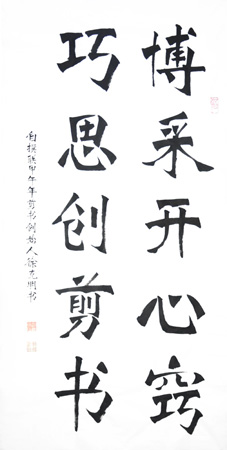 博采开心窍
巧思创剪书
自撰联甲午年剪书创始人徐克明书